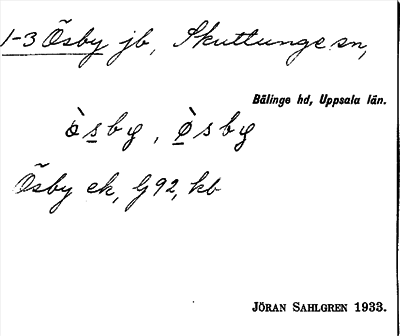 1-3 Õsby jb, Skuttunge sn,
Bälinge hd, Uppsala län.
Õsby ek, G92, kb
JÖRAN SAHLGREN 1933.